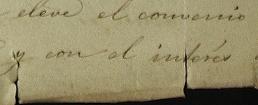 eleve el convenio
y con el interés